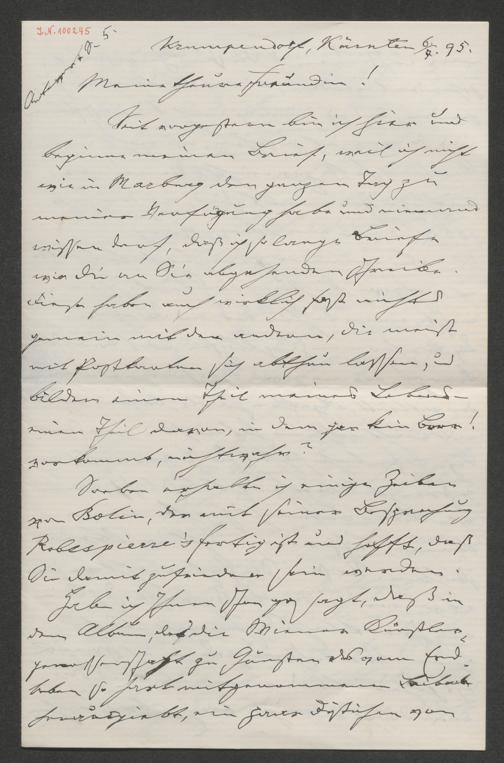 J.N. 100245
5.
Krumpendorf, Kärnten 6/7. 95.
Meine theure Freundin!
Seit vorgestern bin ich hier und
beginne meinen Brief, weil ich nicht
wie in Marburg den ganzen Tag zu
meiner Verfügung habe und niemand
wissen darf, daß ich so lange Briefe
wie die an Sie abgehenden schreibe.
Diese haben auch wirklich fast nichts
gemein mit den andern, die meist
mit Postkarten sich abthun lassen, und
bilden einen Theil meines Lebens –
einen Theil davon, in dem gar kein
vorkommt, nichtwahr?
Soeben erhalte ich einige Zeilen
von Bölin, der mit seiner Besprechung
Robespierre's fertig ist und hofft, daß
Sie damit zufrieden sein werden.
Habe ich Ihnen schon gesagt, daß in
dem Album, das die Wiener Künstler-
genossenschaft zu Gunsten des vom Erd-
beben so hart mitgenommenen Laibach
herausgiebt, ein paar Distichen von